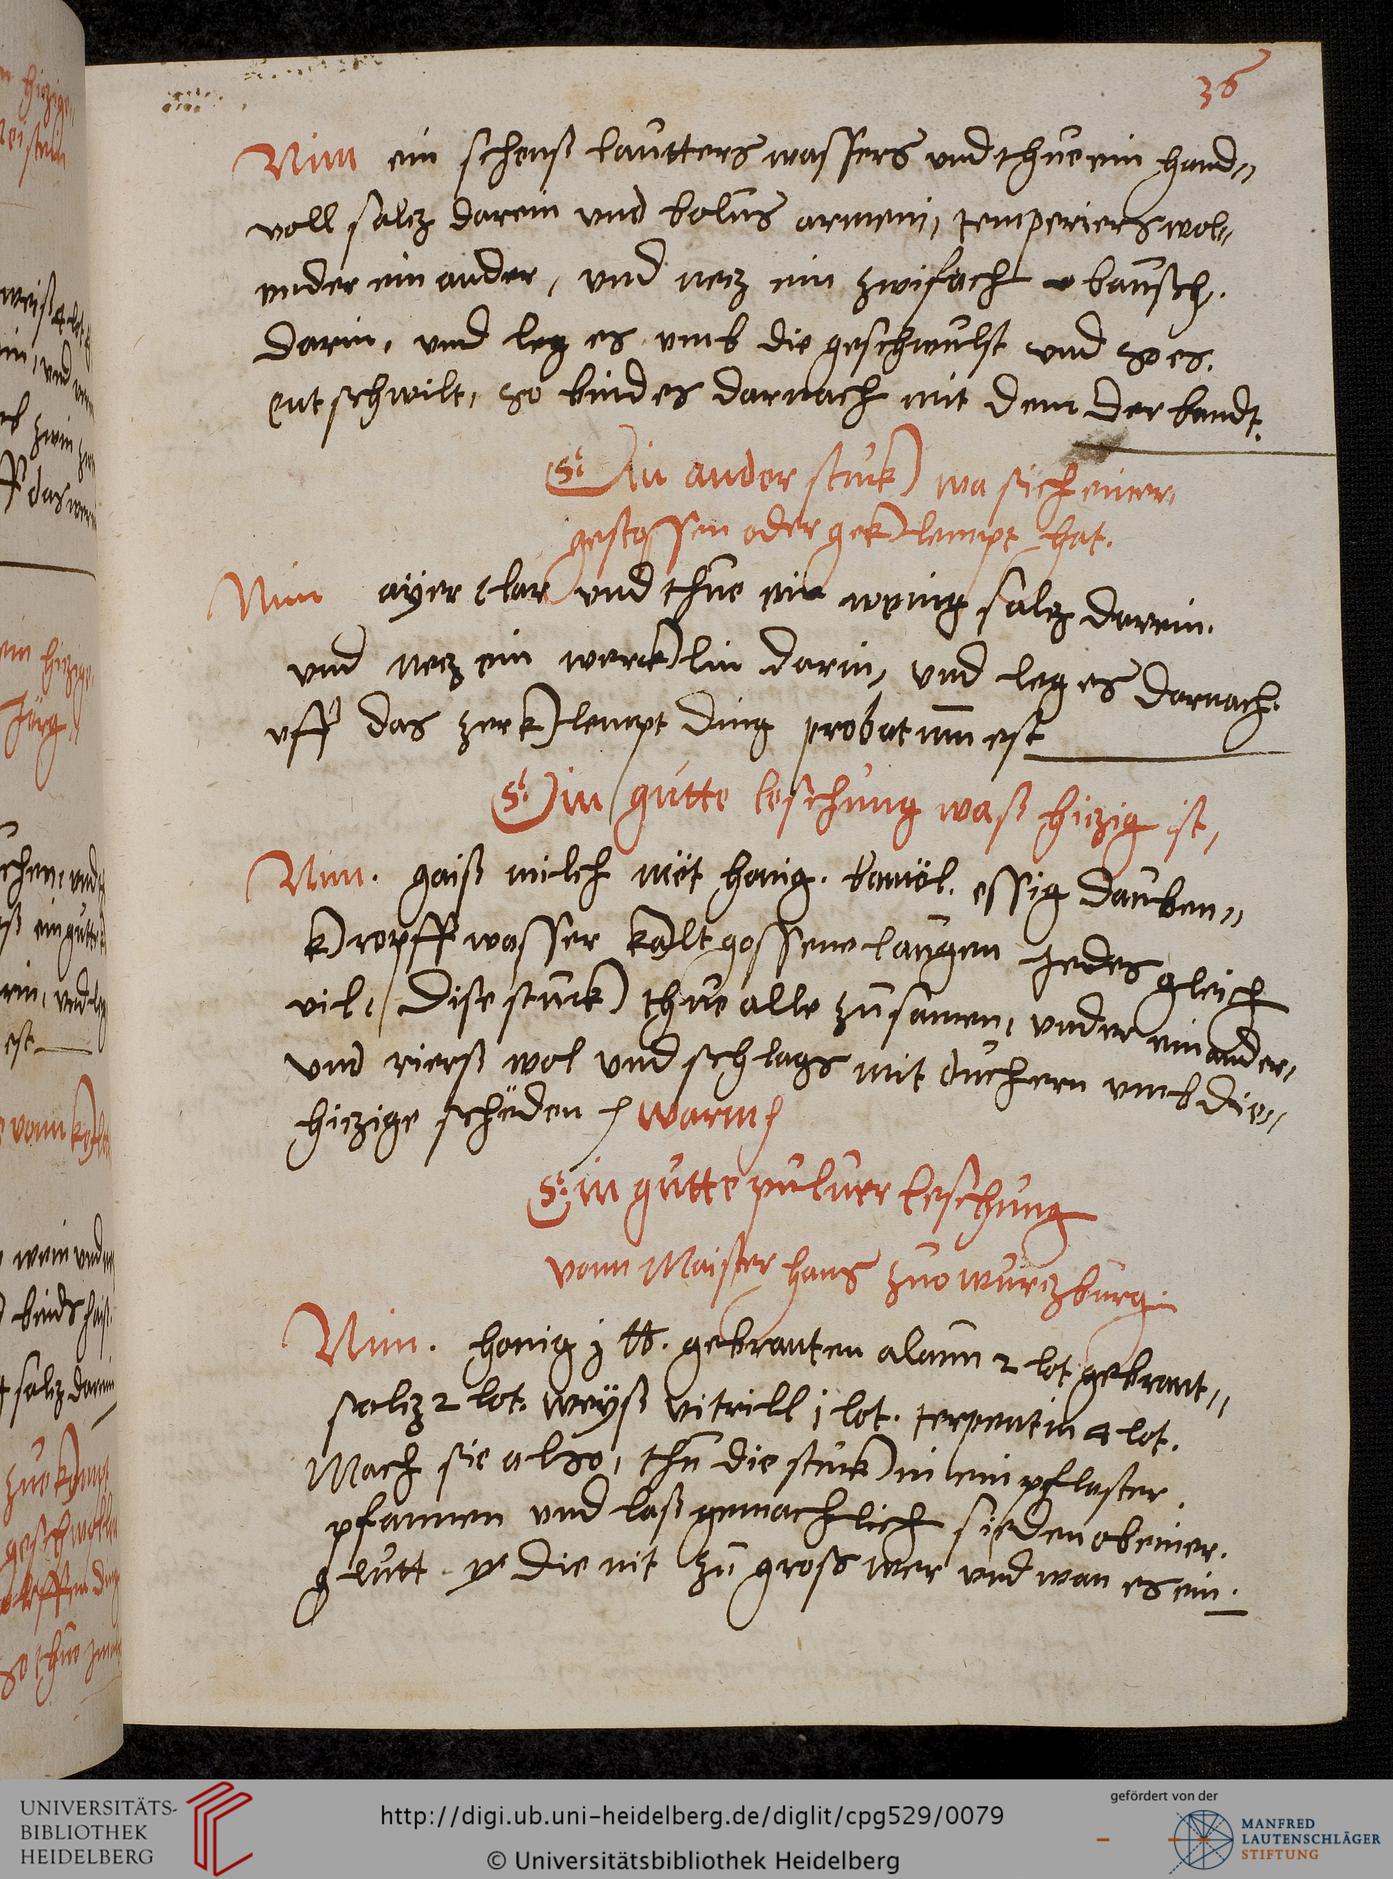 36
Nim ein schenß lautters wassers vnd thue ein hand„
voll salcz darein vnd bolus armeni, temperiers wol„
vnder ein ander, vnd necz ein zwifach bausch.
darin, vnd leg es vmb die geschwulst vnd so es.
entschwilt, so bind es darnach mit dem der bandt.
Ein ander stuck wa sich einer,
gestossen oder geklempt hat.
Nim ayer clar vnd thue ein wenig salcz darein.
vnd necz ein wercklin darin, vnd leg es darnach.
vff das zerklempt ding probatum est
Ein gutte leschung waß hiczig ist,
Nim. gaiß milch mët honig. bamöl. essig dauben„
kropff wasser kalt gossene laugen jedes gleich
vil, dise stuck thue alle zusamen, vnder ein ander,
vnd rierß wol vnd schlags mit duchern vmb die„
hiczige schëden warm
Ein gutte puluer leschung
vonn Maister hans zuo wurczburg.
Nim. honig j lb. gebranten alaun 2 lot gebrant„
salcz 2 lot. weyß vitrill j lot. terpentin 4 lot.
Mach sie also, thu die stuck in ein pflaster.
pfannen vnd laß gemachlich sieden ob einer.
glutt die nit zu gross wer vnd wan es ein.
UNIVERSITÄTS-
BIBLIOTHEK
HEIDELBERG
http://digi.ub.uni-heidelberg.de/diglit/cpg529/0079
© Universitätsbibliothek Heidelberg
gefördert von der
MANFRED
LAUTENSCHLÄGER
STIFTUNG